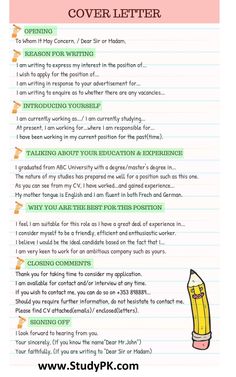 COVER LETTER
OPENING
To Whom It May Concern, / Dear Sir or Madam,
REASON FOR WRITING
I am writing to express my interest in the position of...
I wish to apply for the position of...
I am writing in response to your advertisement for...
I am writing to enquire as to whether there are any vacancies...
INTRODUCING YOURSELF
I am currently working as.../ I am currently studying...
At present, I am working for...where I am responsible for...
I have been working in my current position for the past(time).
TALKING ABOUT YOUR EDUCATION & EXPERIENCE
I graduated from ABC University with a degree/master's degree in...
The nature of my studies has prepared me well for a position such as this one.
As you can see from my CV, I have worked...and gained experience...
My mother tongue is English and I am fluent in both French and German.
WHY YOU ARE THE BEST FOR THIS POSITION
I feel I am suitable for this role as I have a great deal of experience in...
I consider myself to be a friendly, efficient and enthusiastic worker.
I believe I would be the ideal candidate based on the fact that I...
I am very keen to work for an ambitious company such as yours.
CLOSING COMMENTS
Thank you for taking time to consider my application.
I am available for contact and/or interview at any time.
If you wish to contact me, you can do so on
Should you require further information, do not hesitate to contact me.
Please find CV attached(emails)/ enclosed(letters).
SIGNING OFF
I look forward to hearing from you.
Your sincerely, (if you know the name"Dear Mr.John")
Your faithfully, (if you are writing to "Dear Sir or Madam)
www.StudyPK.com